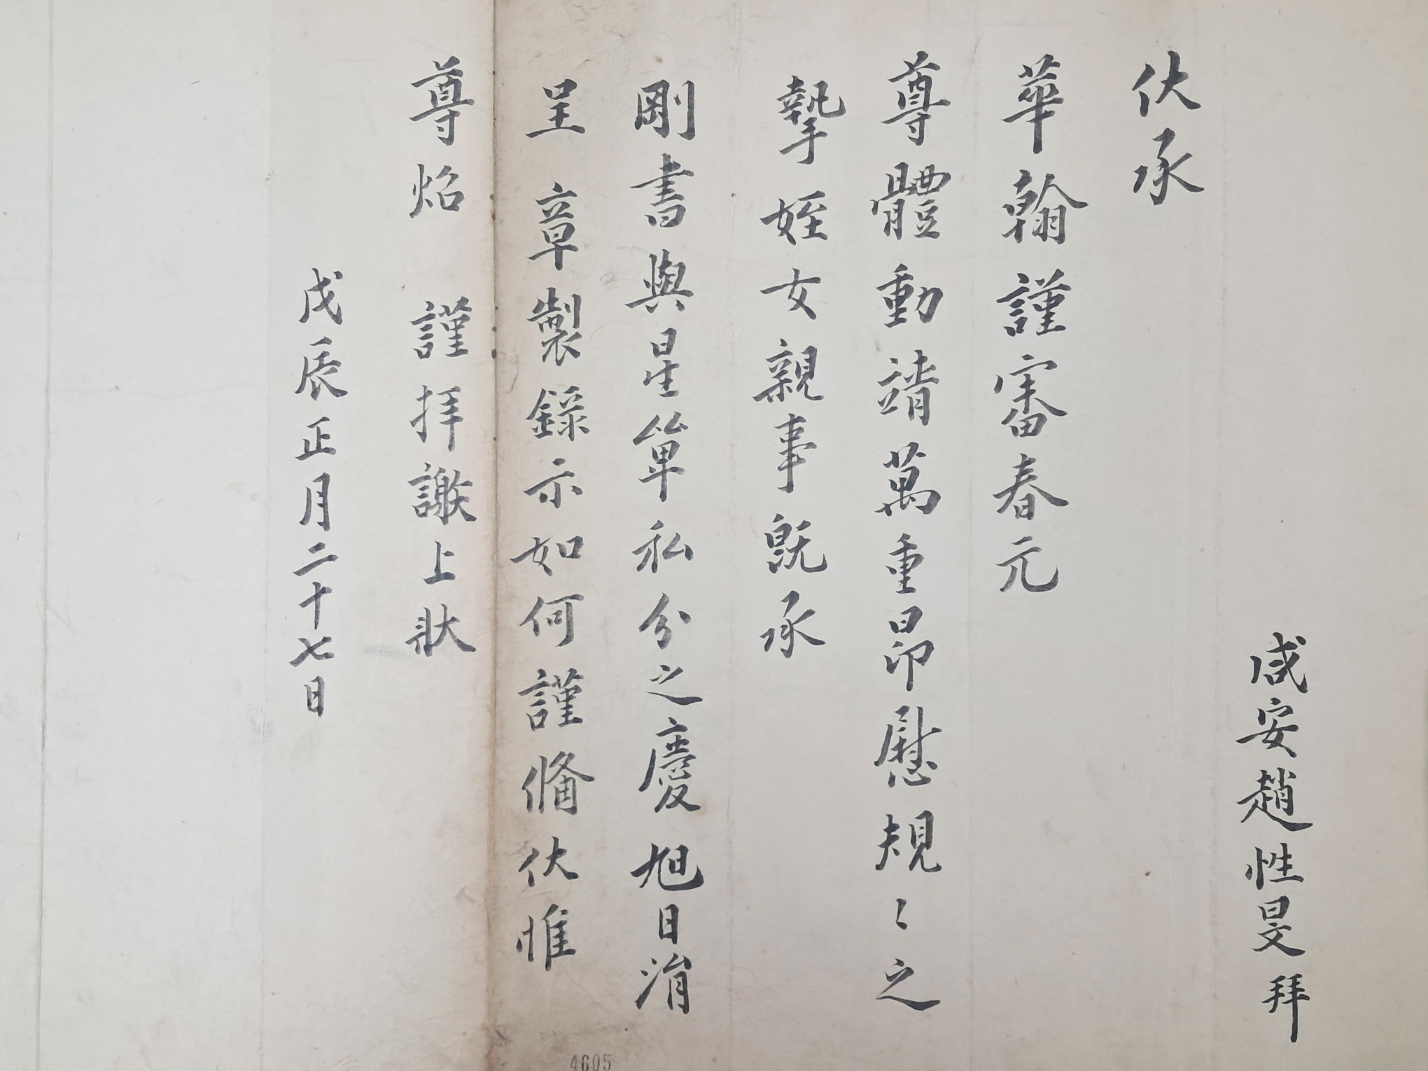 咸安趙性旻拜
伏承
華翰謹審春元
尊體動靖萬重昻慰規〻之
摯姪女親事旣承
剛書與星單私分之慶旭日涓
呈 章製錄示如何謹備伏惟
尊炤 謹拜謝上狀
戊辰正月二十七日
4605